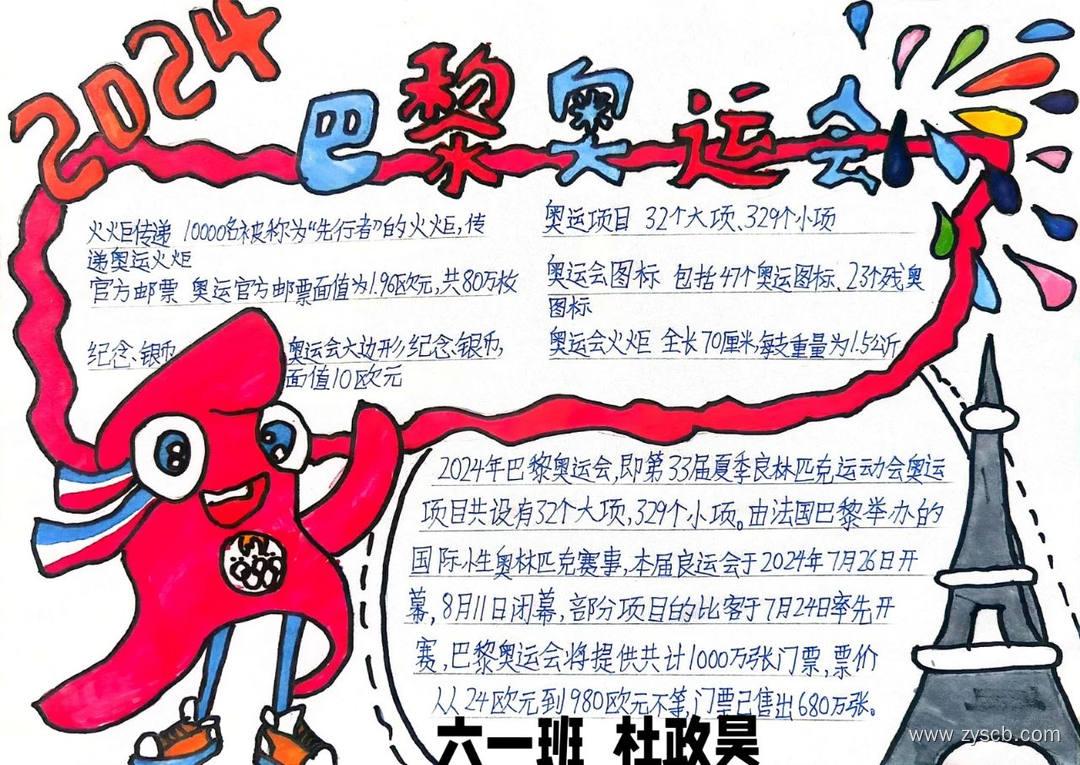 2024
巴黎奥运会
火炬传递 10000名被称为“先行者”的火炬,传
递奥运火炬
官方邮票 奥运官方邮票面值为1.96欧元,共80万枚
纪念、银币 奥运会六边形纪念、银币,
面值10欧元
奥运项目 32个大项、329个小项
奥运会图标 包括47个奥运图标、23个残奥
图标
奥运会火炬 全长70厘米,每支重量为1.5公斤
2024年巴黎奥运会,即第33届夏季良林匹克运动会奥运
项目共设有32个大项,329个小项。由法国巴黎举办的
国际性奥林匹克赛事,本届良运会于2024年7月26日开
幕,8月11日闭幕,部分项目的比客于7月24日率先开
赛,巴黎奥运会将提供共计1000万张门票,票价
从24欧元到980欧元不等,门票已售出680万张。
六一班 杜政昊
www.zyscb.com